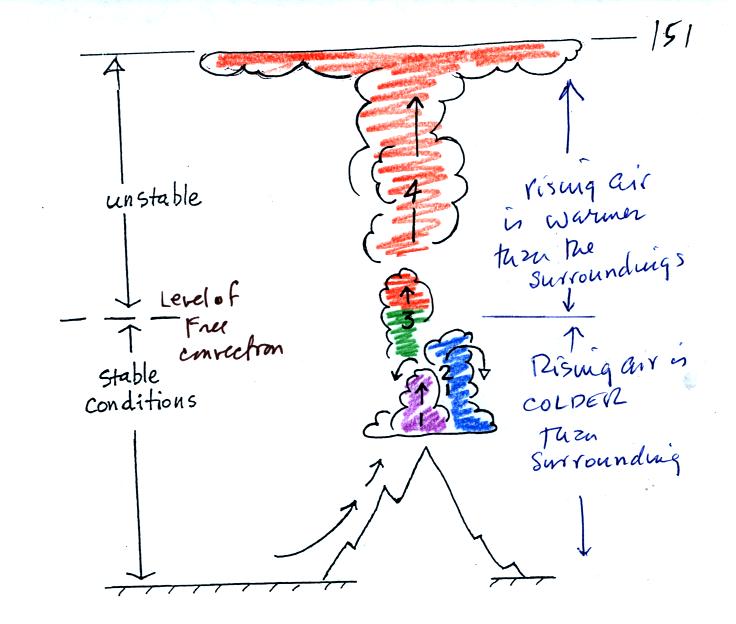 151
unstable
rising air
is warmer
than the
surroundings
4
Level of
Free
convection
3
stable
conditions
2
1
Rising air is
COLDER
than
surrounding